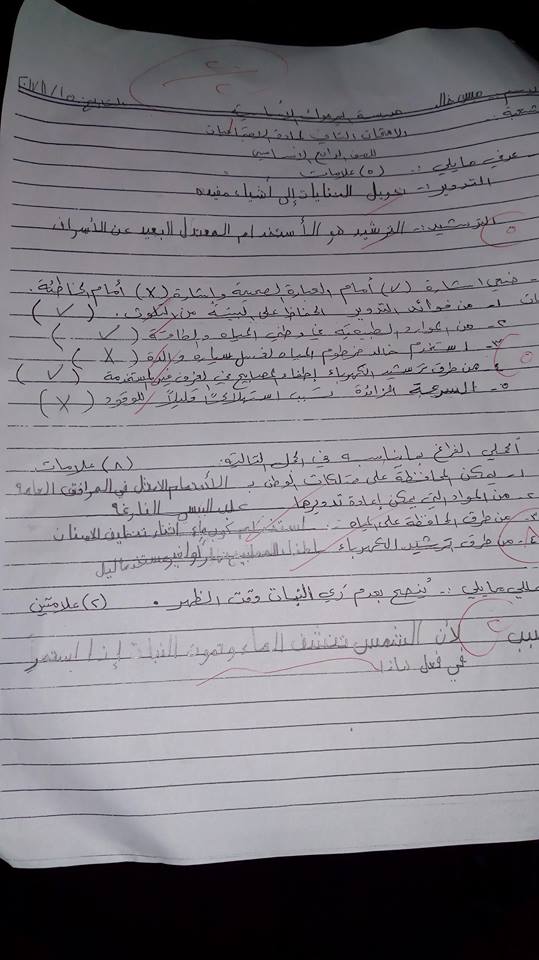 ٢٠
٢٠
الامتحان الثاني لمادة الاجتماعيات
للصف الرابع الاساسي
عرفي مايلي :- (٥) علامات
التدوير :- تحويل النفايات إلى أشياء مفيده
الترشيد :- الترشيد هو الأستخدام المعتدل البعيد عن الأسراف
٥
ضعي اشارة (✓) أمام العبارة الصحيحة واشارة (X) أمام الخاطئة.
١- من فوائد التدوير الحفاظ على البيئة من التلوث. (✓)
٢- من الموارد الطبيعية في وطني المياه والطاقة (✓)
٣- استخدم خالد خرطوم المياه لغسل سيارة والده (X)
٤- من طرق ترشيد الكهرباء إطفاء المصابيح في الغرف غير المستخدمة (✓)
٥- السرعة الزائدة تسبب استهلاكاً قليلاً للوقود (X)
٥
أكملي الفراغ بما يناسبه في الجمل التالية: (٨) علامات
١- يمكن المحافظة على ممتلكات الوطن بـ الأستخدام الامثل في المرافق العامة
٢- من المواد التي يمكن إعادة تدويرها علب البيبس الفارغة
٣- من طرق المحافظة على المياه :- استخدام كوب ماء اثناء تنظيف الاسنان
٤- من طرق ترشيد الكهرباء اطفاء المصابيح نهاراً وليلاً
عللي مايلي :- يُنصح بعدم ري النبات وقت الظهر. (٢) علامتين
السبب لأن الشمس تنشف الماء وتموت النبتة إذا استمر
في فعل هاذا
٢